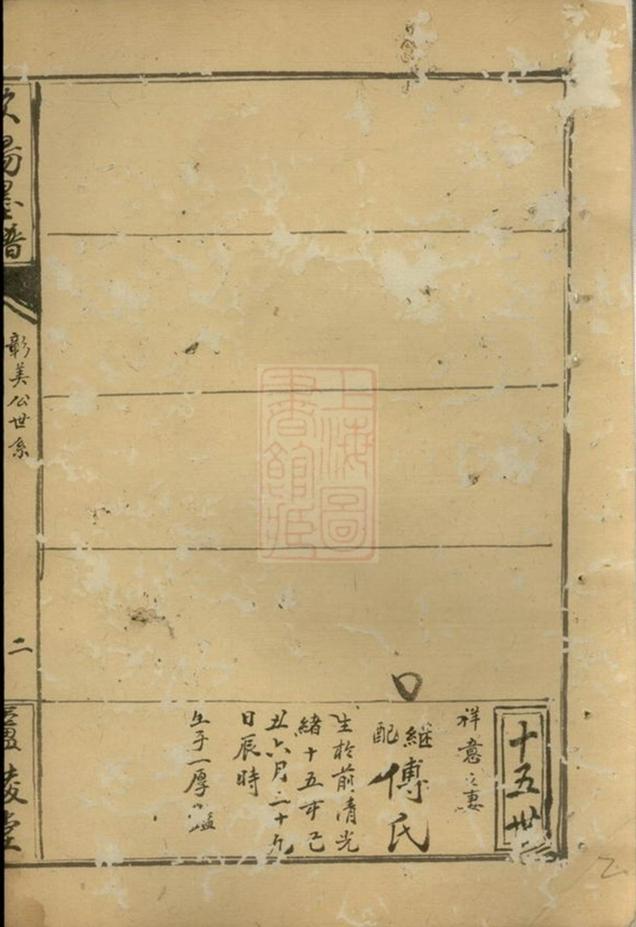 十五世
祥意之妻
継配傅氏
生於前清光
緒十五年己
丑六月二十九
日辰時
生子一厚
歐陽墨譜
彰美公世系
二
上海圖
書館